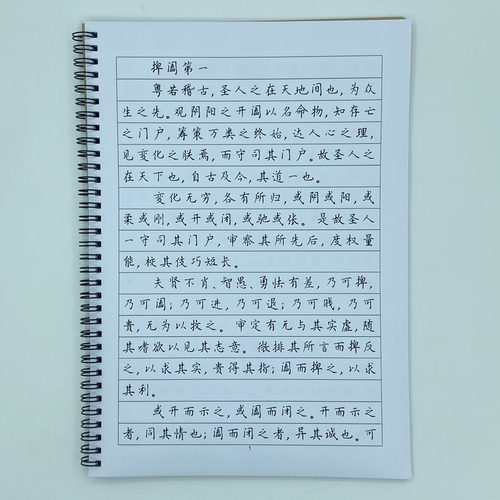 捭阖第一
粤若稽古，圣人之在天地间也，为众
生之先。观阴阳之开阖以名命物，知存亡
之门户，筹策万类之终始，达人心之理，
见变化之朕焉，而守司其门户。故圣人之
在天下也，自古及今，其道一也。
变化无穷，各有所归，或阴或阳，或
柔或刚，或开或闭，或驰或张。是故圣人
一守司其门户，审察其所先后，度权量
能，校其伎巧短长。
夫贤不肖、智愚、勇怯有差，乃可捭，
乃可阖；乃可进，乃可退；乃可贱，乃可
贵，无为以牧之。审定有无与其实虚，随
其嗜欲以见其志意。微排其所言而捭反
之，以求其实，贵得其指；阖而捭之，以求
其利。
或开而示之，或阖而闭之。开而示之
者，同其情也；阖而闭之者，异其诚也。可
1